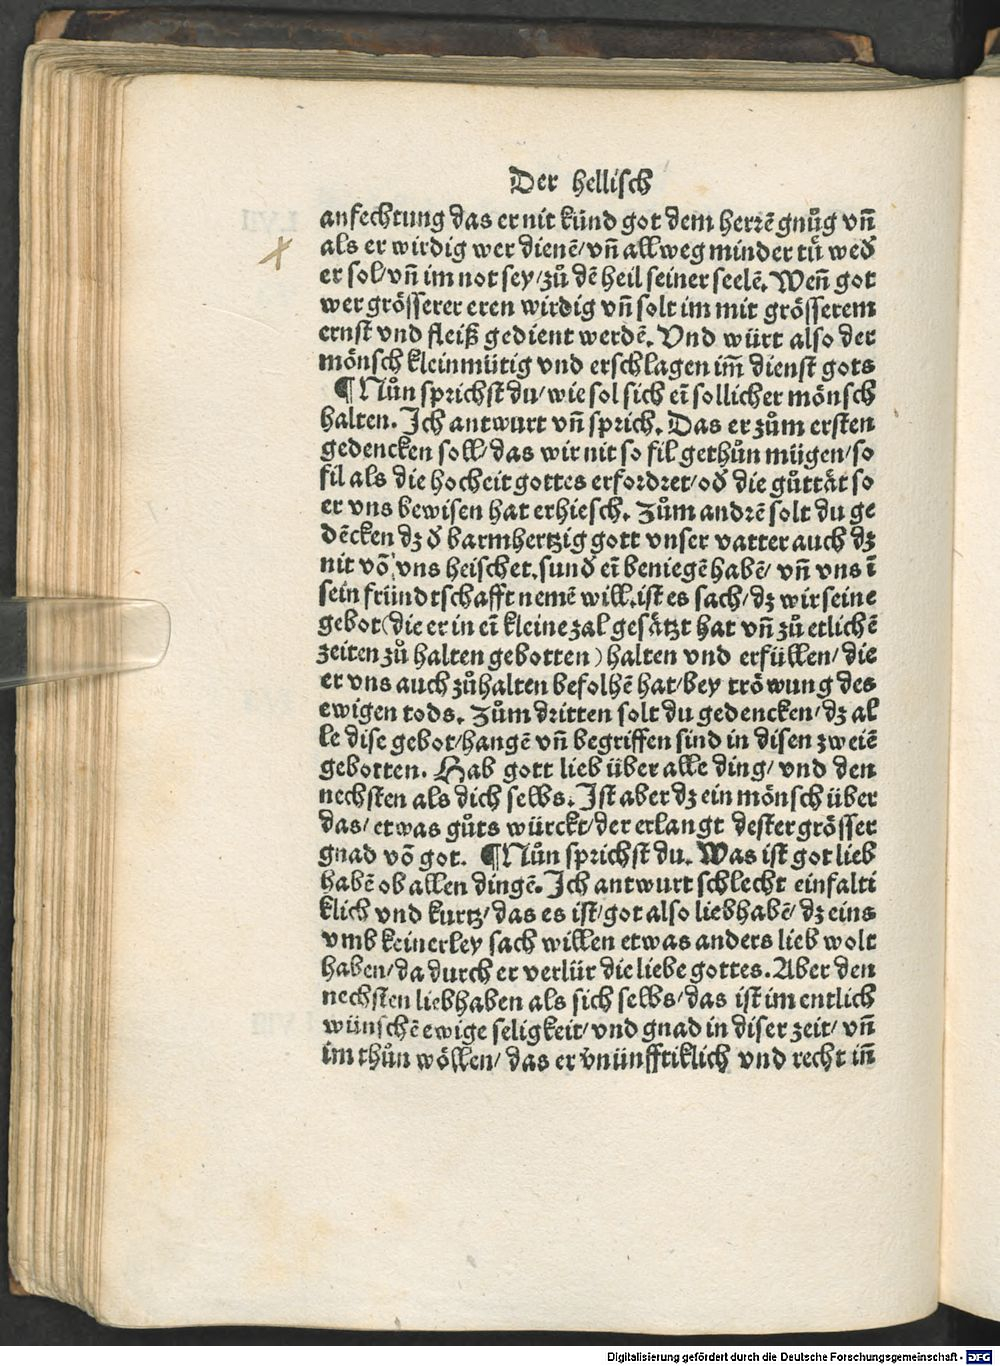 Der hellisch
anfechtung das er nit künd got dem herrē gnůg vñ
als er wirdig wer dienē/ vñ allweg minder tů wed̄
er sol/ vñ im not sey/ zů dē heil seiner seelē. Weñ got
wer grösserer eren wirdig vñ solt im mit grösserem
ernst vnd fleiß gedient werdē. Vnd würt also der
mönsch kleinmütig vnd erschlagen im̄ dienst gots
¶ Nůn sprichst du/ wie sol sich eī sollicher mönsch
halten. Ich antwurt vñ sprich. Das er zům ersten
gedencken soll/ das wir nit so fil gethůn mügen/ so
fil als die hocheit gottes erfordret/ od̄ die gůttät so
er vns bewisen hat erhiesch. Zům andrē solt du ge
dēcken dz d̄ barmhertzig gott vnser vatter auch dz
nit vō vns heischet. sund̄ eī beniegē habē/ vñ vns ī
sein fründtschafft nemē will. ist es sach/ dz wir seine
gebot (die er in eī kleine zal gesätzt hat vñ zů etlichē
zeiten zů halten gebotten) halten vnd erfüllen/ die
er vns auch zůhalten befolhē hat/ bey tröwung des
ewigen tods. Zům dritten solt du gedencken/ dz al
le dise gebot/ hangē vñ begriffen sind in disen zweiē
gebotten. Hab gott lieb über alle ding/ vnd den
nechsten als dich selbs. Ist aber dz ein mönsch über
das/ etwas gůts würckt/ der erlangt dester grösser
gnad vō got. ¶ Nůn sprichst du. Was ist got lieb
habē ob allen dingē. Ich antwurt schlecht einfalti
klich vnd kurtz/ das es ist/ got also liebhabē/ dz eins
vmb keinerley sach willen etwas anders lieb wolt
haben/ da durch er verlür die liebe gottes. Aber den
nechsten liebhaben als sich selbs/ das ist im entlich
wünschē ewige seligkeit/ vnd gnad in diser zeit/ vñ
im thůn wöllen/ das er v̄nünfftiklich vnd recht iñ
Digitalisierung gefördert durch die Deutsche Forschungsgemeinschaft - DFG